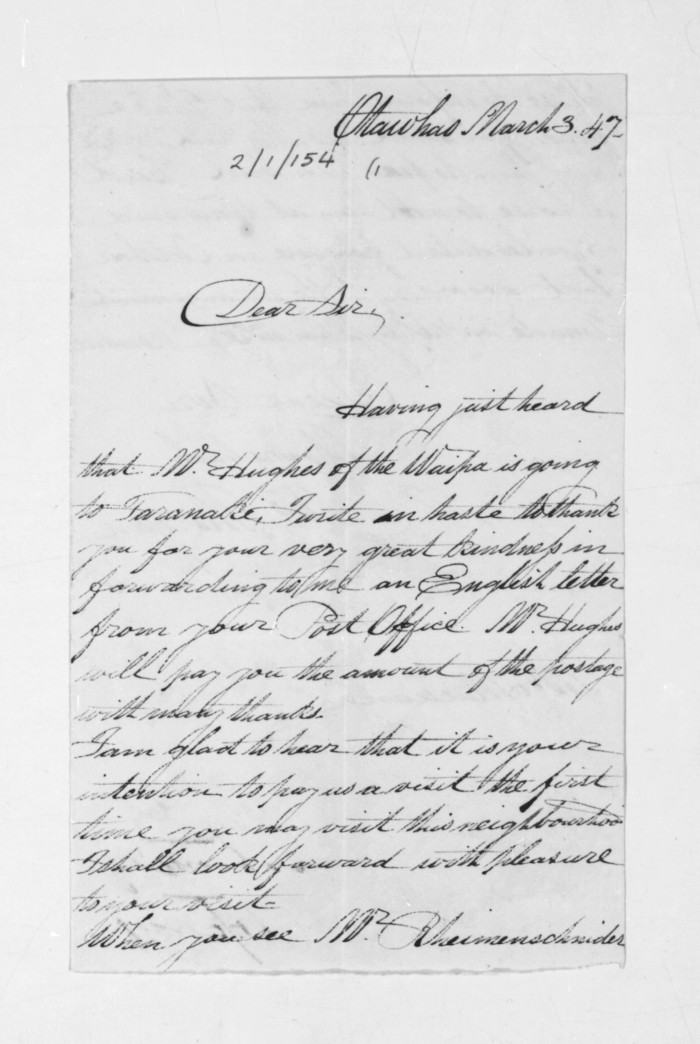 Otawhao March 3. 47-
2/1/154 (1
Dear Sir,
Having just heard
that Mr Hughes of the Waipa is going
to Taranake, I write in haste to thank
you for your very great kindness in
forwarding to me an English letter
from your Post Office. Mr Hughes
will pay you the amount of the postage
with many thanks.
I am glad to hear that it is your
intention to pay us a visit the first
time you may visit this neighbourhoo
I shall look forward with pleasure
to your visit-
When you see Mr Rheimenschnider